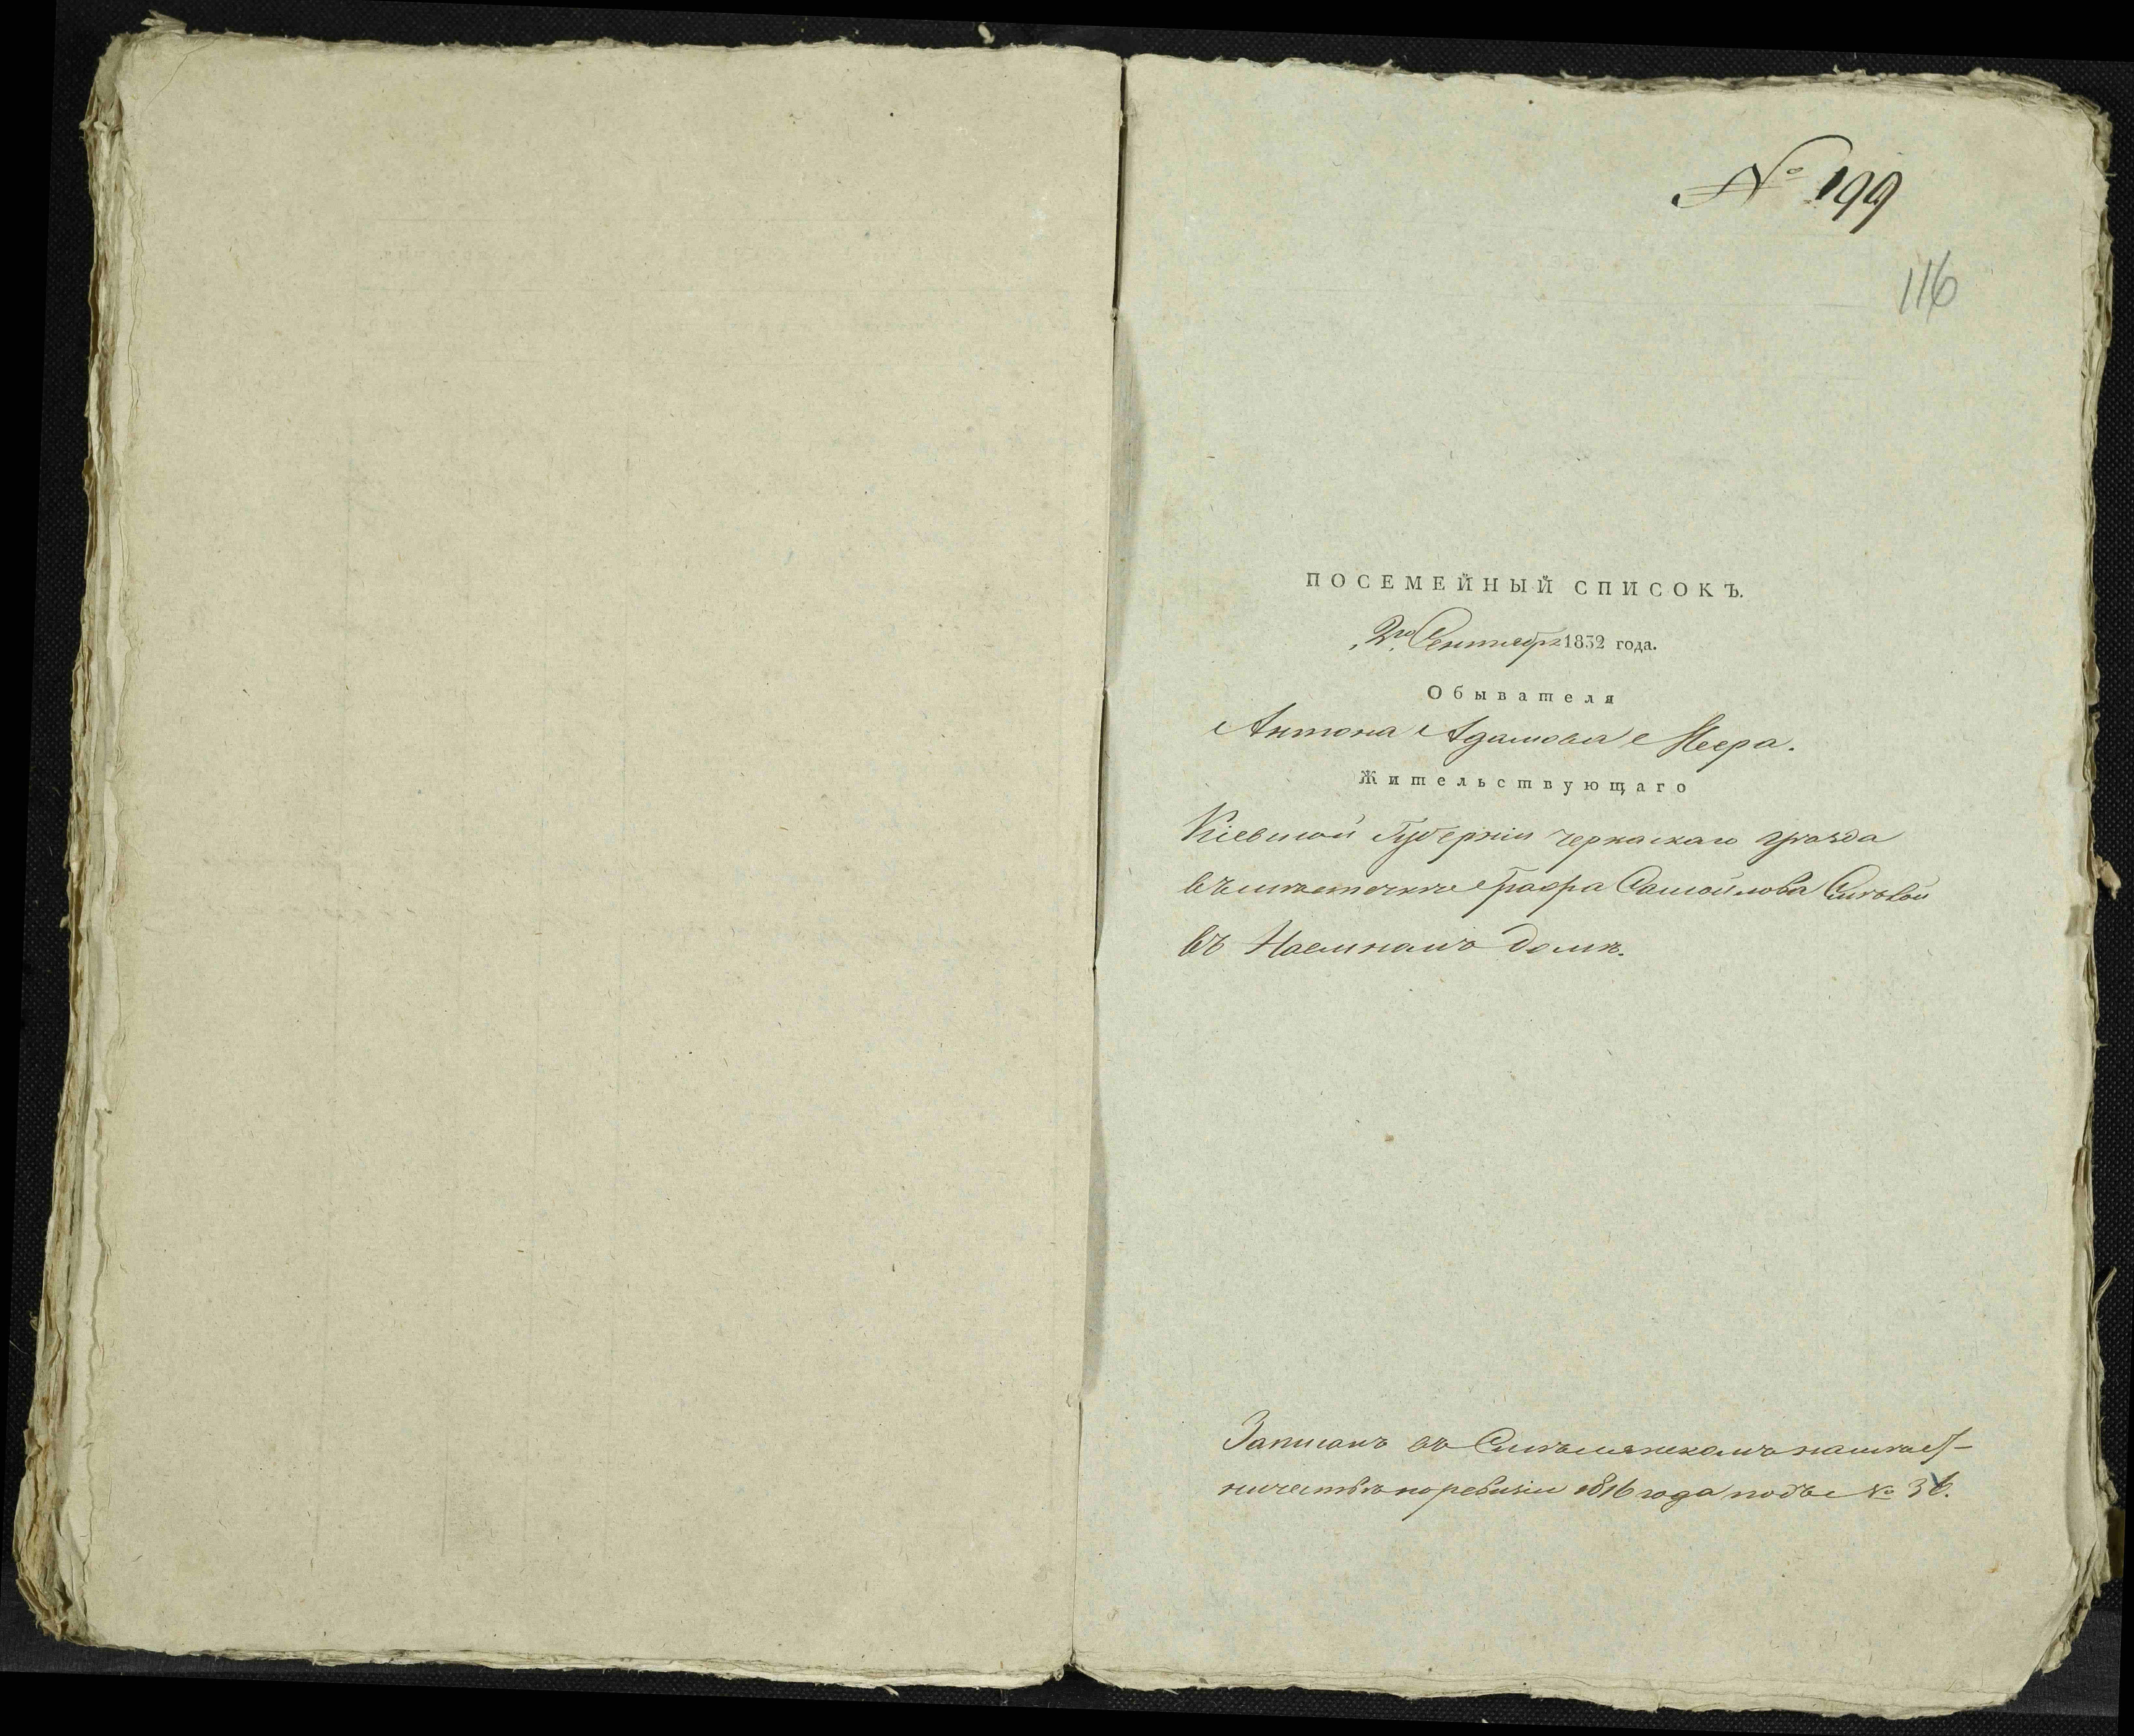 № 199
116
ПОСЕМЕЙНЫЙ СПИСОКЪ.
2го Сентября 1832 года.
Обывателя
Антона Адамова Меера.
Жительствующаго
Кіевской Губерніи Черкаскаго уѣзда
въ мѣстечке Графа Самойлова Смѣлой
въ Наемномъ домѣ.
Записанъ въ Смѣлянскомъ намѣст-
ничествѣ по ревизіи 1816 года подъ № 36.